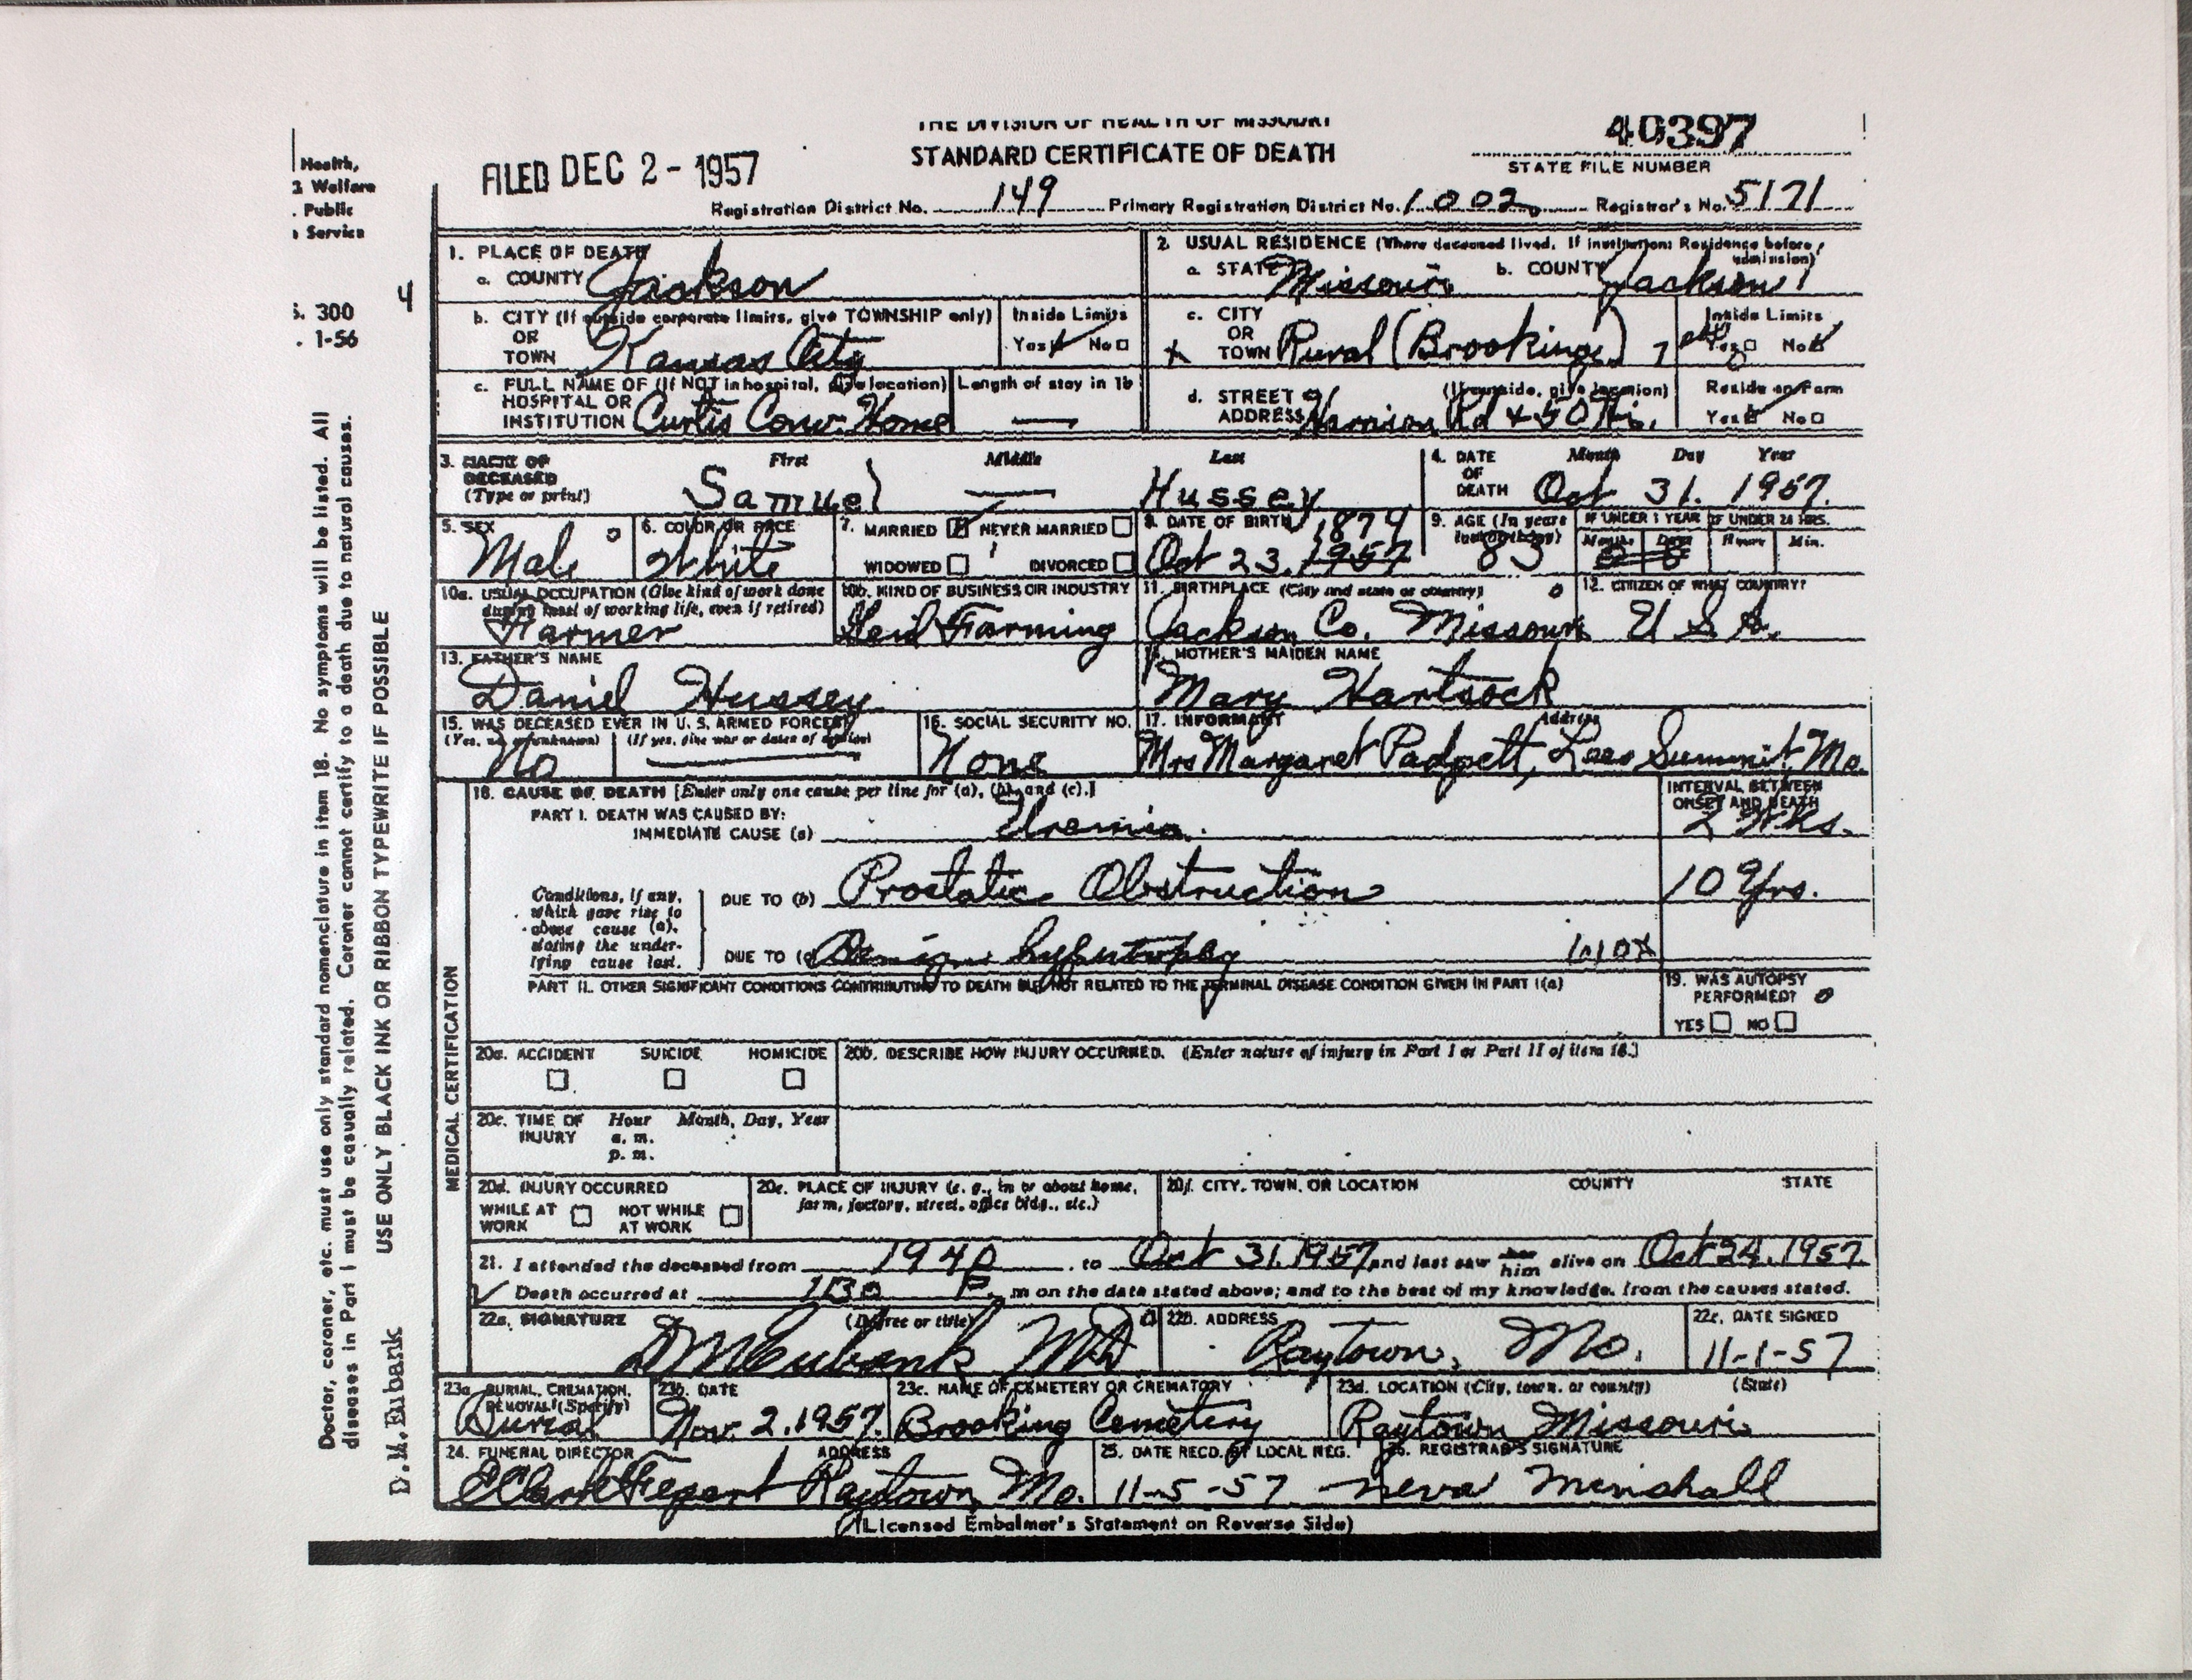 THE DIVISION OF HEALTH OF MISSOURI
STANDARD CERTIFICATE OF DEATH
FILED DEC 2 - 1957
40397
STATE FILE NUMBER
Registration District No. 149 Primary Registration District No. 1002 Registrar's No. 5171
Health,
& Welfare
. Public
Service
S. 300
. 1-56
4
Doctor, coroner, etc. must use only standard nomenclature in item 18. No symptoms will be listed. All
diseases in Part I must be casually related. Coroner cannot certify to a death due to natural causes.
USE ONLY BLACK INK OR RIBBON TYPEWRITE IF POSSIBLE
D.M. Eubank
1. PLACE OF DEATH
a. COUNTY Jackson
2. USUAL RESIDENCE (Where deceased lived. If institution: Residence before admission)
a. STATE Missouri b. COUNTY Jackson
b. CITY (If outside corporate limits, give TOWNSHIP only) OR TOWN Kansas City
Inside Limits Yes No
c. CITY OR TOWN Rural (Brooking)
Inside Limits Yes No
c. FULL NAME OF (If NOT in hospital, give location) HOSPITAL OR INSTITUTION Curtis Conv. Home
Length of stay in 1b —
d. STREET ADDRESS (If outside, give location) Rd + 50 Hi.
Reside on Farm Yes No
3. NAME OF DECEASED (Type or print) First Samuel Middle — Last Hussey
4. DATE OF DEATH Month Day Year Oct 31. 1957.
5. SEX Male
6. COLOR OR RACE White
7. MARRIED NEVER MARRIED
WIDOWED DIVORCED
8. DATE OF BIRTH Oct 23. 1957 1874
9. AGE (In years last birthday) 83
IF UNDER 1 YEAR Months Days
IF UNDER 24 HRS. Hours Min.
10a. USUAL OCCUPATION (Give kind of work done during most of working life, even if retired) Farmer
10b. KIND OF BUSINESS OR INDUSTRY Farming
11. BIRTHPLACE (City and state or country) Jackson Co. Missouri
12. CITIZEN OF WHAT COUNTRY? U S A.
13. FATHER'S NAME
Daniel Hussey
14. MOTHER'S MAIDEN NAME
Mary Hartsock
15. WAS DECEASED EVER IN U. S. ARMED FORCES?
(Yes, no, or unknown) (If yes, give war or dates of service)
No —
16. SOCIAL SECURITY NO.
None
17. INFORMANT Address
Mrs Margaret Padgett, Lees Summit Mo.
MEDICAL CERTIFICATION
18. CAUSE OF DEATH [Enter only one cause per line for (a), (b), and (c).]
INTERVAL BETWEEN ONSET AND DEATH
PART I. DEATH WAS CAUSED BY:
IMMEDIATE CAUSE (a) Uremia. 2 Wks.
Conditions, if any, which gave rise to above cause (a), stating the underlying cause last.
DUE TO (b) Prostatic Obstruction 10 Yrs.
DUE TO (c) Benign hypertrophy
PART II. OTHER SIGNIFICANT CONDITIONS CONTRIBUTING TO DEATH BUT NOT RELATED TO THE TERMINAL DISEASE CONDITION GIVEN IN PART I(a)
19. WAS AUTOPSY PERFORMED?
YES NO
20a. ACCIDENT SUICIDE HOMICIDE
20b. DESCRIBE HOW INJURY OCCURRED. (Enter nature of injury in Part I or Part II of item 18.)
20c. TIME OF INJURY Hour a. m. p. m. Month, Day, Year
20d. INJURY OCCURRED
WHILE AT WORK NOT WHILE AT WORK
20e. PLACE OF INJURY (e. g., in or about home, farm, factory, street, office bldg., etc.)
20f. CITY, TOWN, OR LOCATION COUNTY STATE
21. I attended the deceased from 1940 to Oct 31, 1957 and last saw her him alive on Oct 24, 1957.
Death occurred at 1130 P. m on the date stated above; and to the best of my knowledge, from the causes stated.
22a. SIGNATURE (Degree or title) D M Eubank MD
22b. ADDRESS Raytown, Mo.
22c. DATE SIGNED 11-1-57
23a. BURIAL, CREMATION, REMOVAL (Specify) Burial
23b. DATE Nov. 2. 1957.
23c. NAME OF CEMETERY OR CREMATORY Brooking Cemetery
23d. LOCATION (City, town, or county) (State) Raytown Missouri
24. FUNERAL DIRECTOR ADDRESS
Raytown, Mo.
25. DATE RECD. BY LOCAL REG. 11-5-57
26. REGISTRAR'S SIGNATURE
Neva Minshall
(Licensed Embalmer's Statement on Reverse Side)